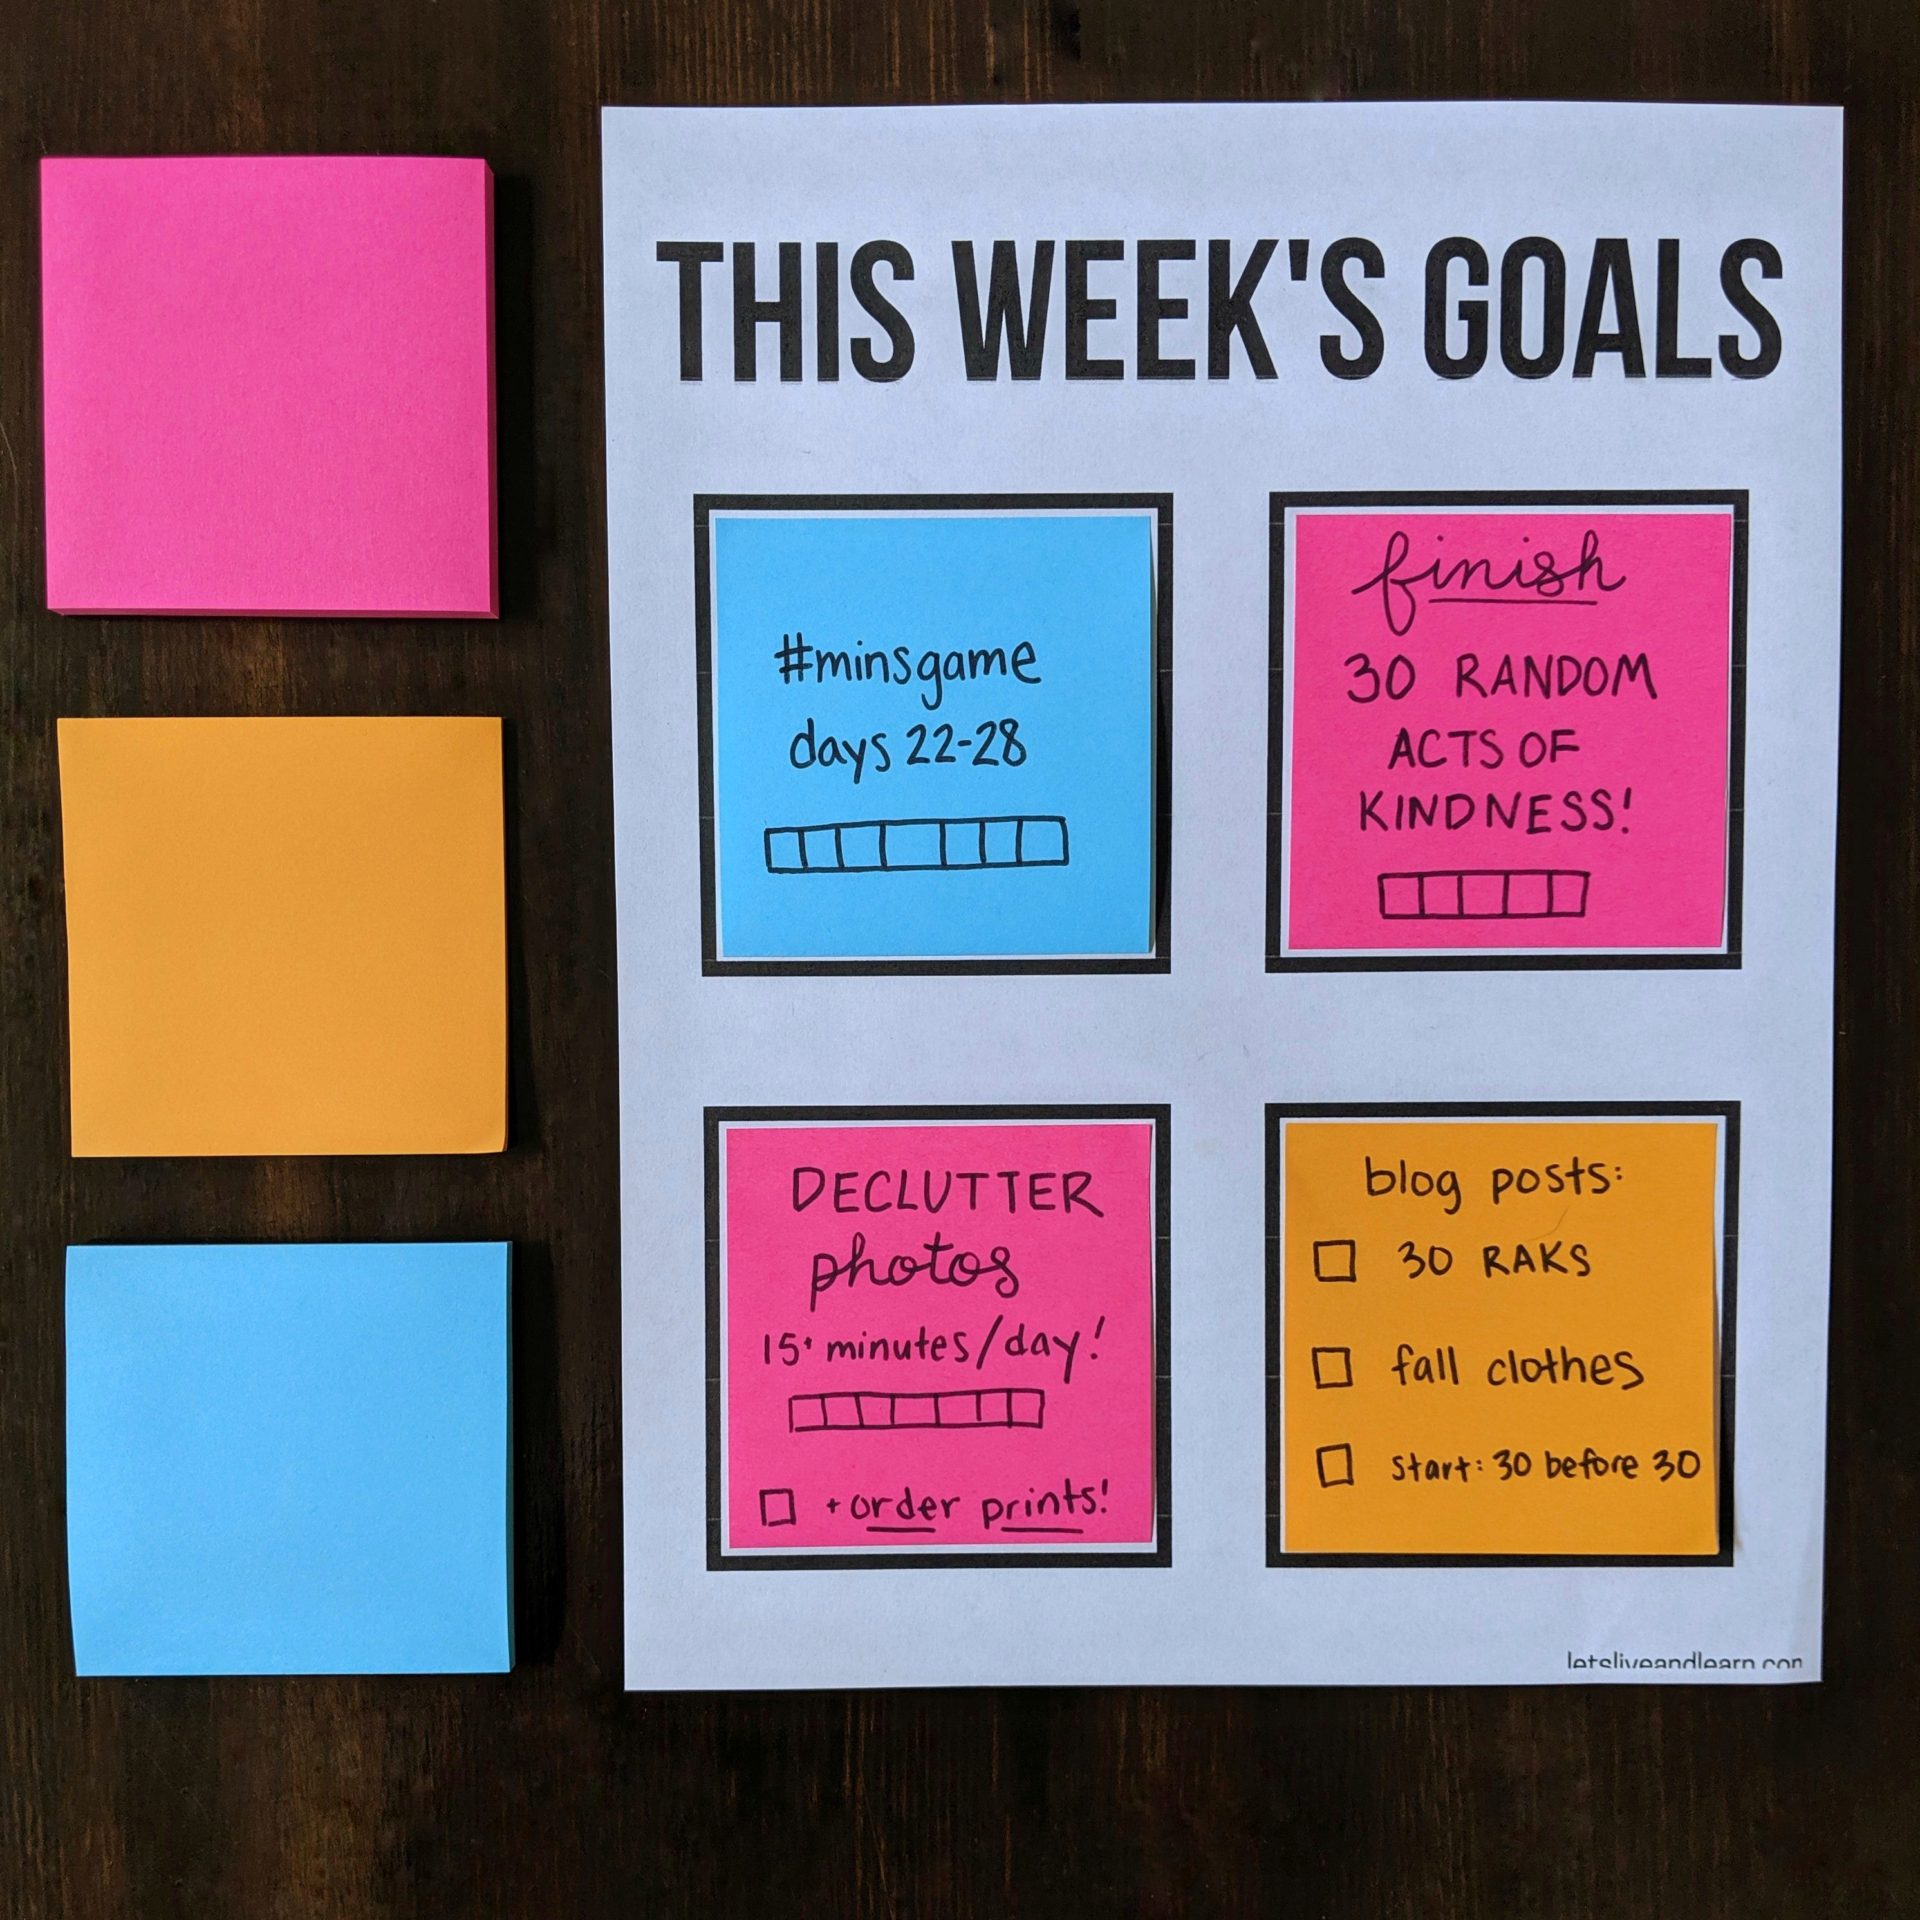 THIS WEEK'S GOALS
#minsgame
days 22-28
finish
30 RANDOM
ACTS OF
KINDNESS!
DECLUTTER
photos
15+ minutes/day!
+ order prints!
blog posts:
30 RAKS
fall clothes
start: 30 before 30
letsliveandlearn.com